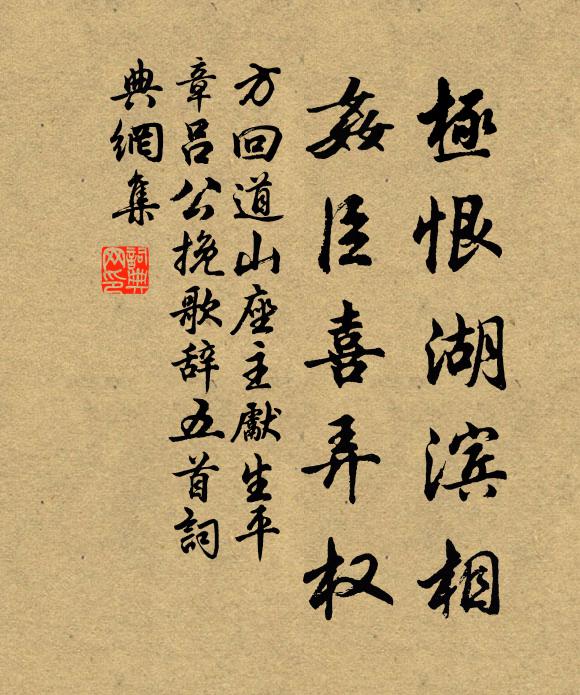 極恨湖滨相
姦臣喜弄权
方回道山座主獻生平
章呂公挽歌辞五首詞
典網集
詞典
网印